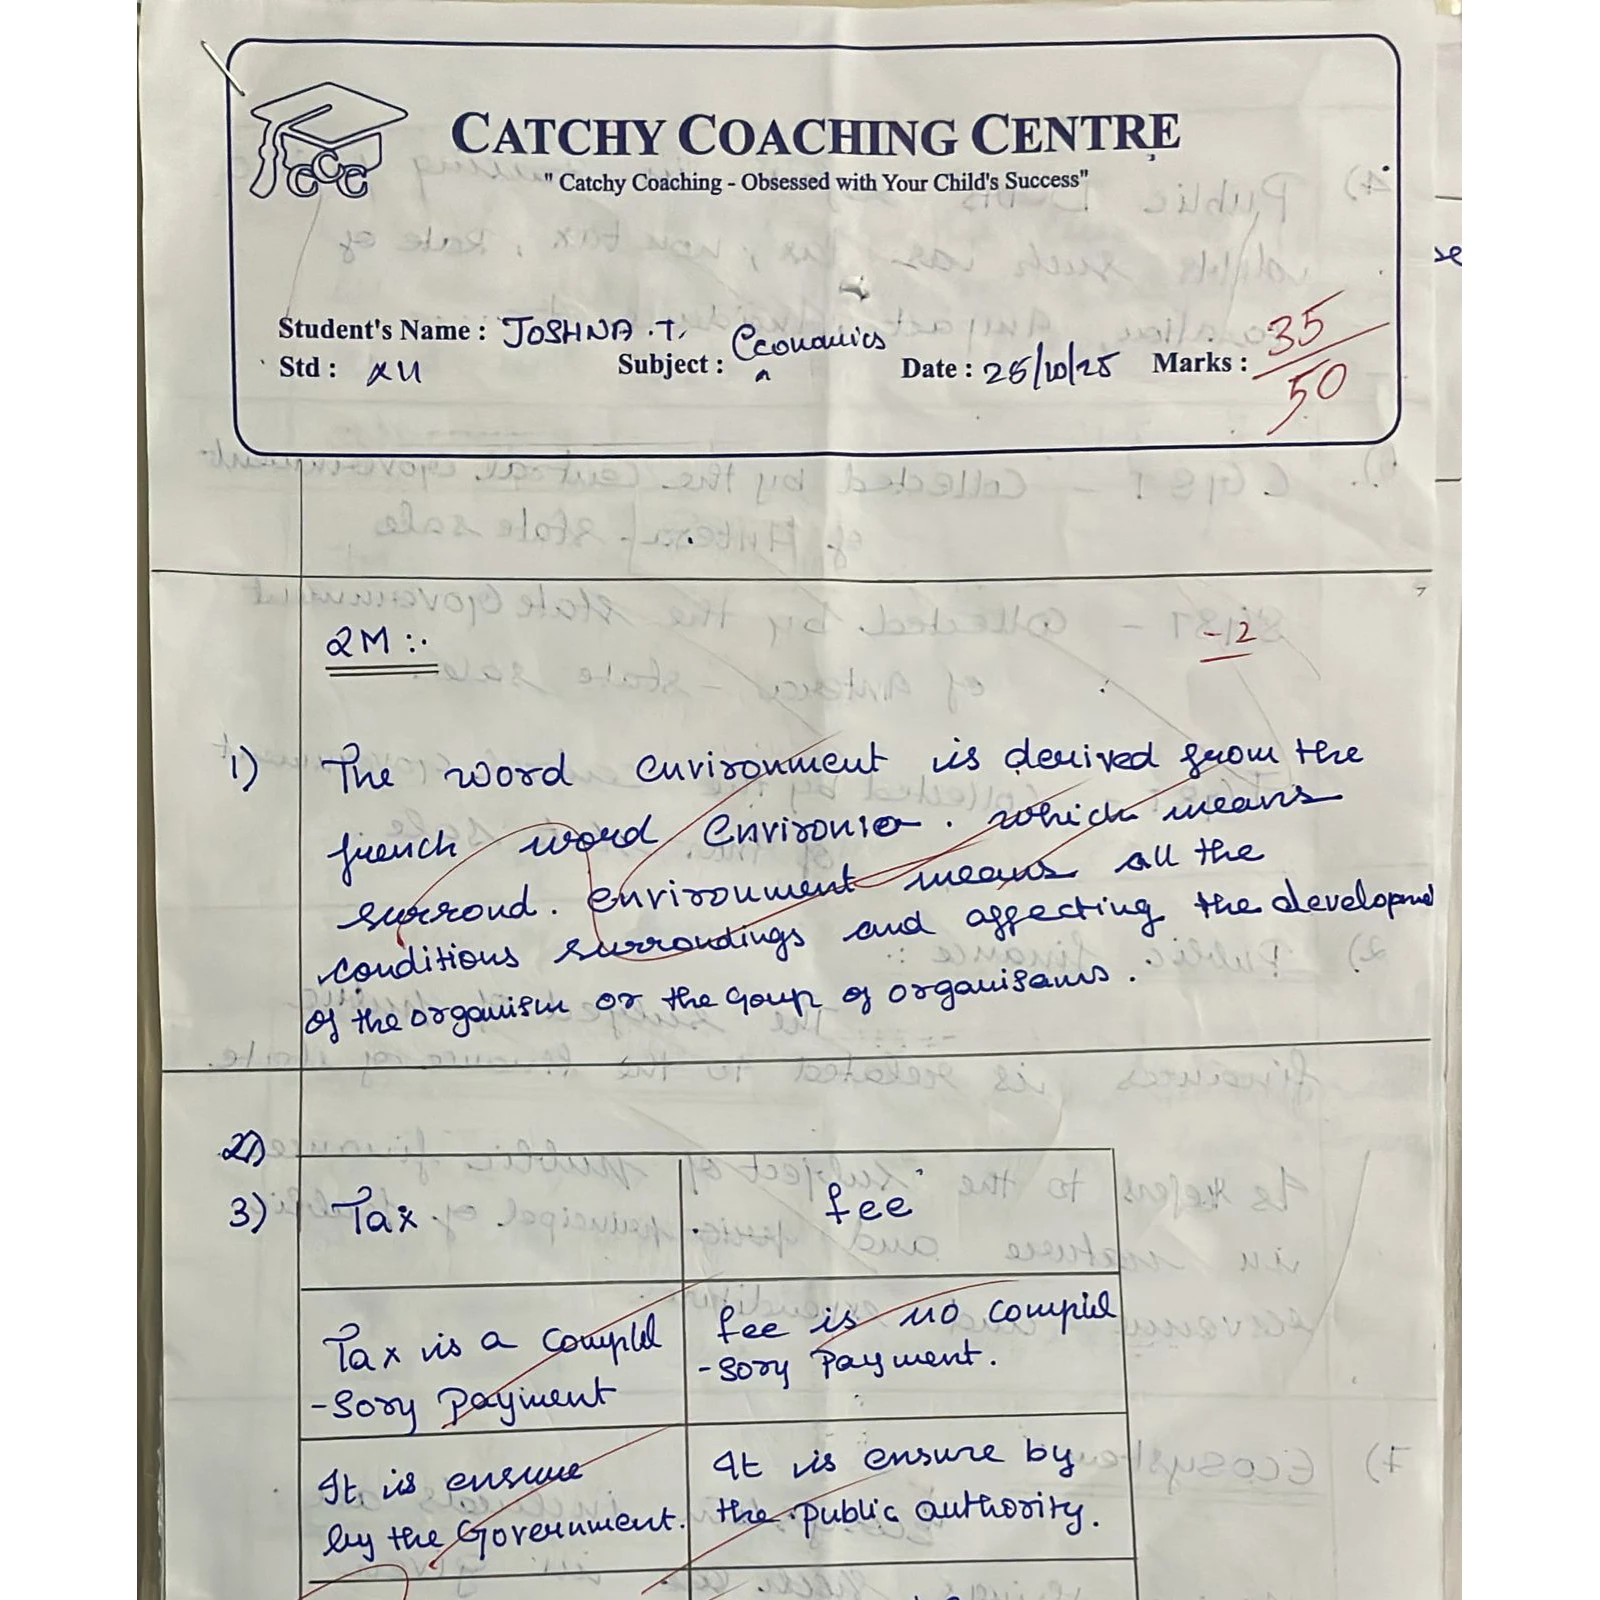 CCC
CATCHY COACHING CENTRE
" Catchy Coaching - Obsessed with Your Child's Success"
Student's Name : JOSHNA .T.
Std : XII Subject : Economics Date : 25/10/25 Marks : 35/50
2M :-
-2
1) The word environment is derived from the
french word Environia . which means
surroud. Environment means all the
conditions surroudings and affecting the developme
of the organism or the Goup of organisams .
2)
3) Tax fee
Tax is a compul fee is no compul
-sory Payment -sory Payment.
It is ensure It is ensure by
by the Government. the public authority.